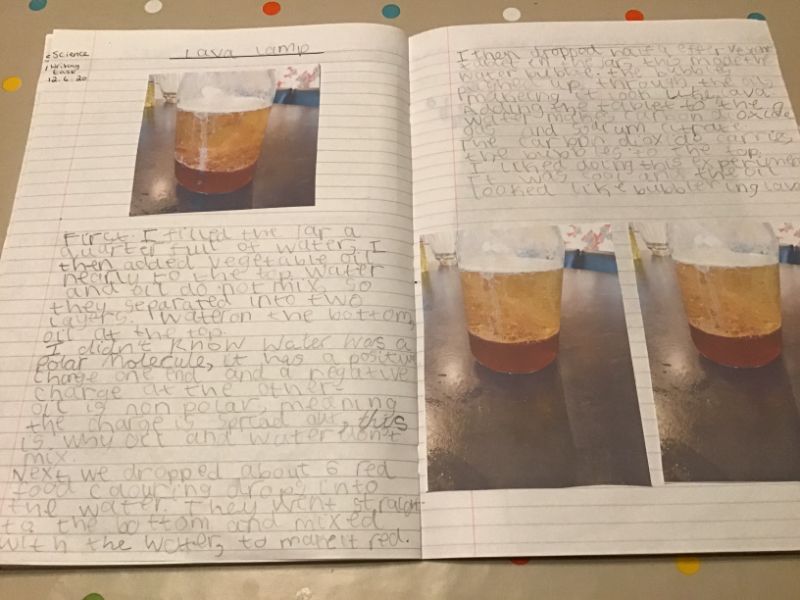 Science
Writing
12.6.20
Lava Lamp
First I filled the jar a
quarter full of water, I
then added vegetable oil
nearly to the top. Water
and oil do not mix, so
they separated into two
layers, water on the bottom,
oil at the top.
I didn't know water was a
polar molecule, it has a positive
charge one end and a negative
charge at the other.
oil is non polar, meaning
the charge is spread out, this
is why oil and water don't
mix.
Next we dropped about 6 red
food colouring drops into
the water. They went straight
to the bottom and mixed
with the water, to make it red.
I then dropped half a effervescent
tablet in the jar, this made the
water bubble. the bubbles
pushed up through the
making it look like lava
the tablet to the
water makes carbon dioxide
gas and
The carbon dioxide carries
the bubbles to the top.
I liked doing this experiment
It was cool and the oil
looked like bubbling lava